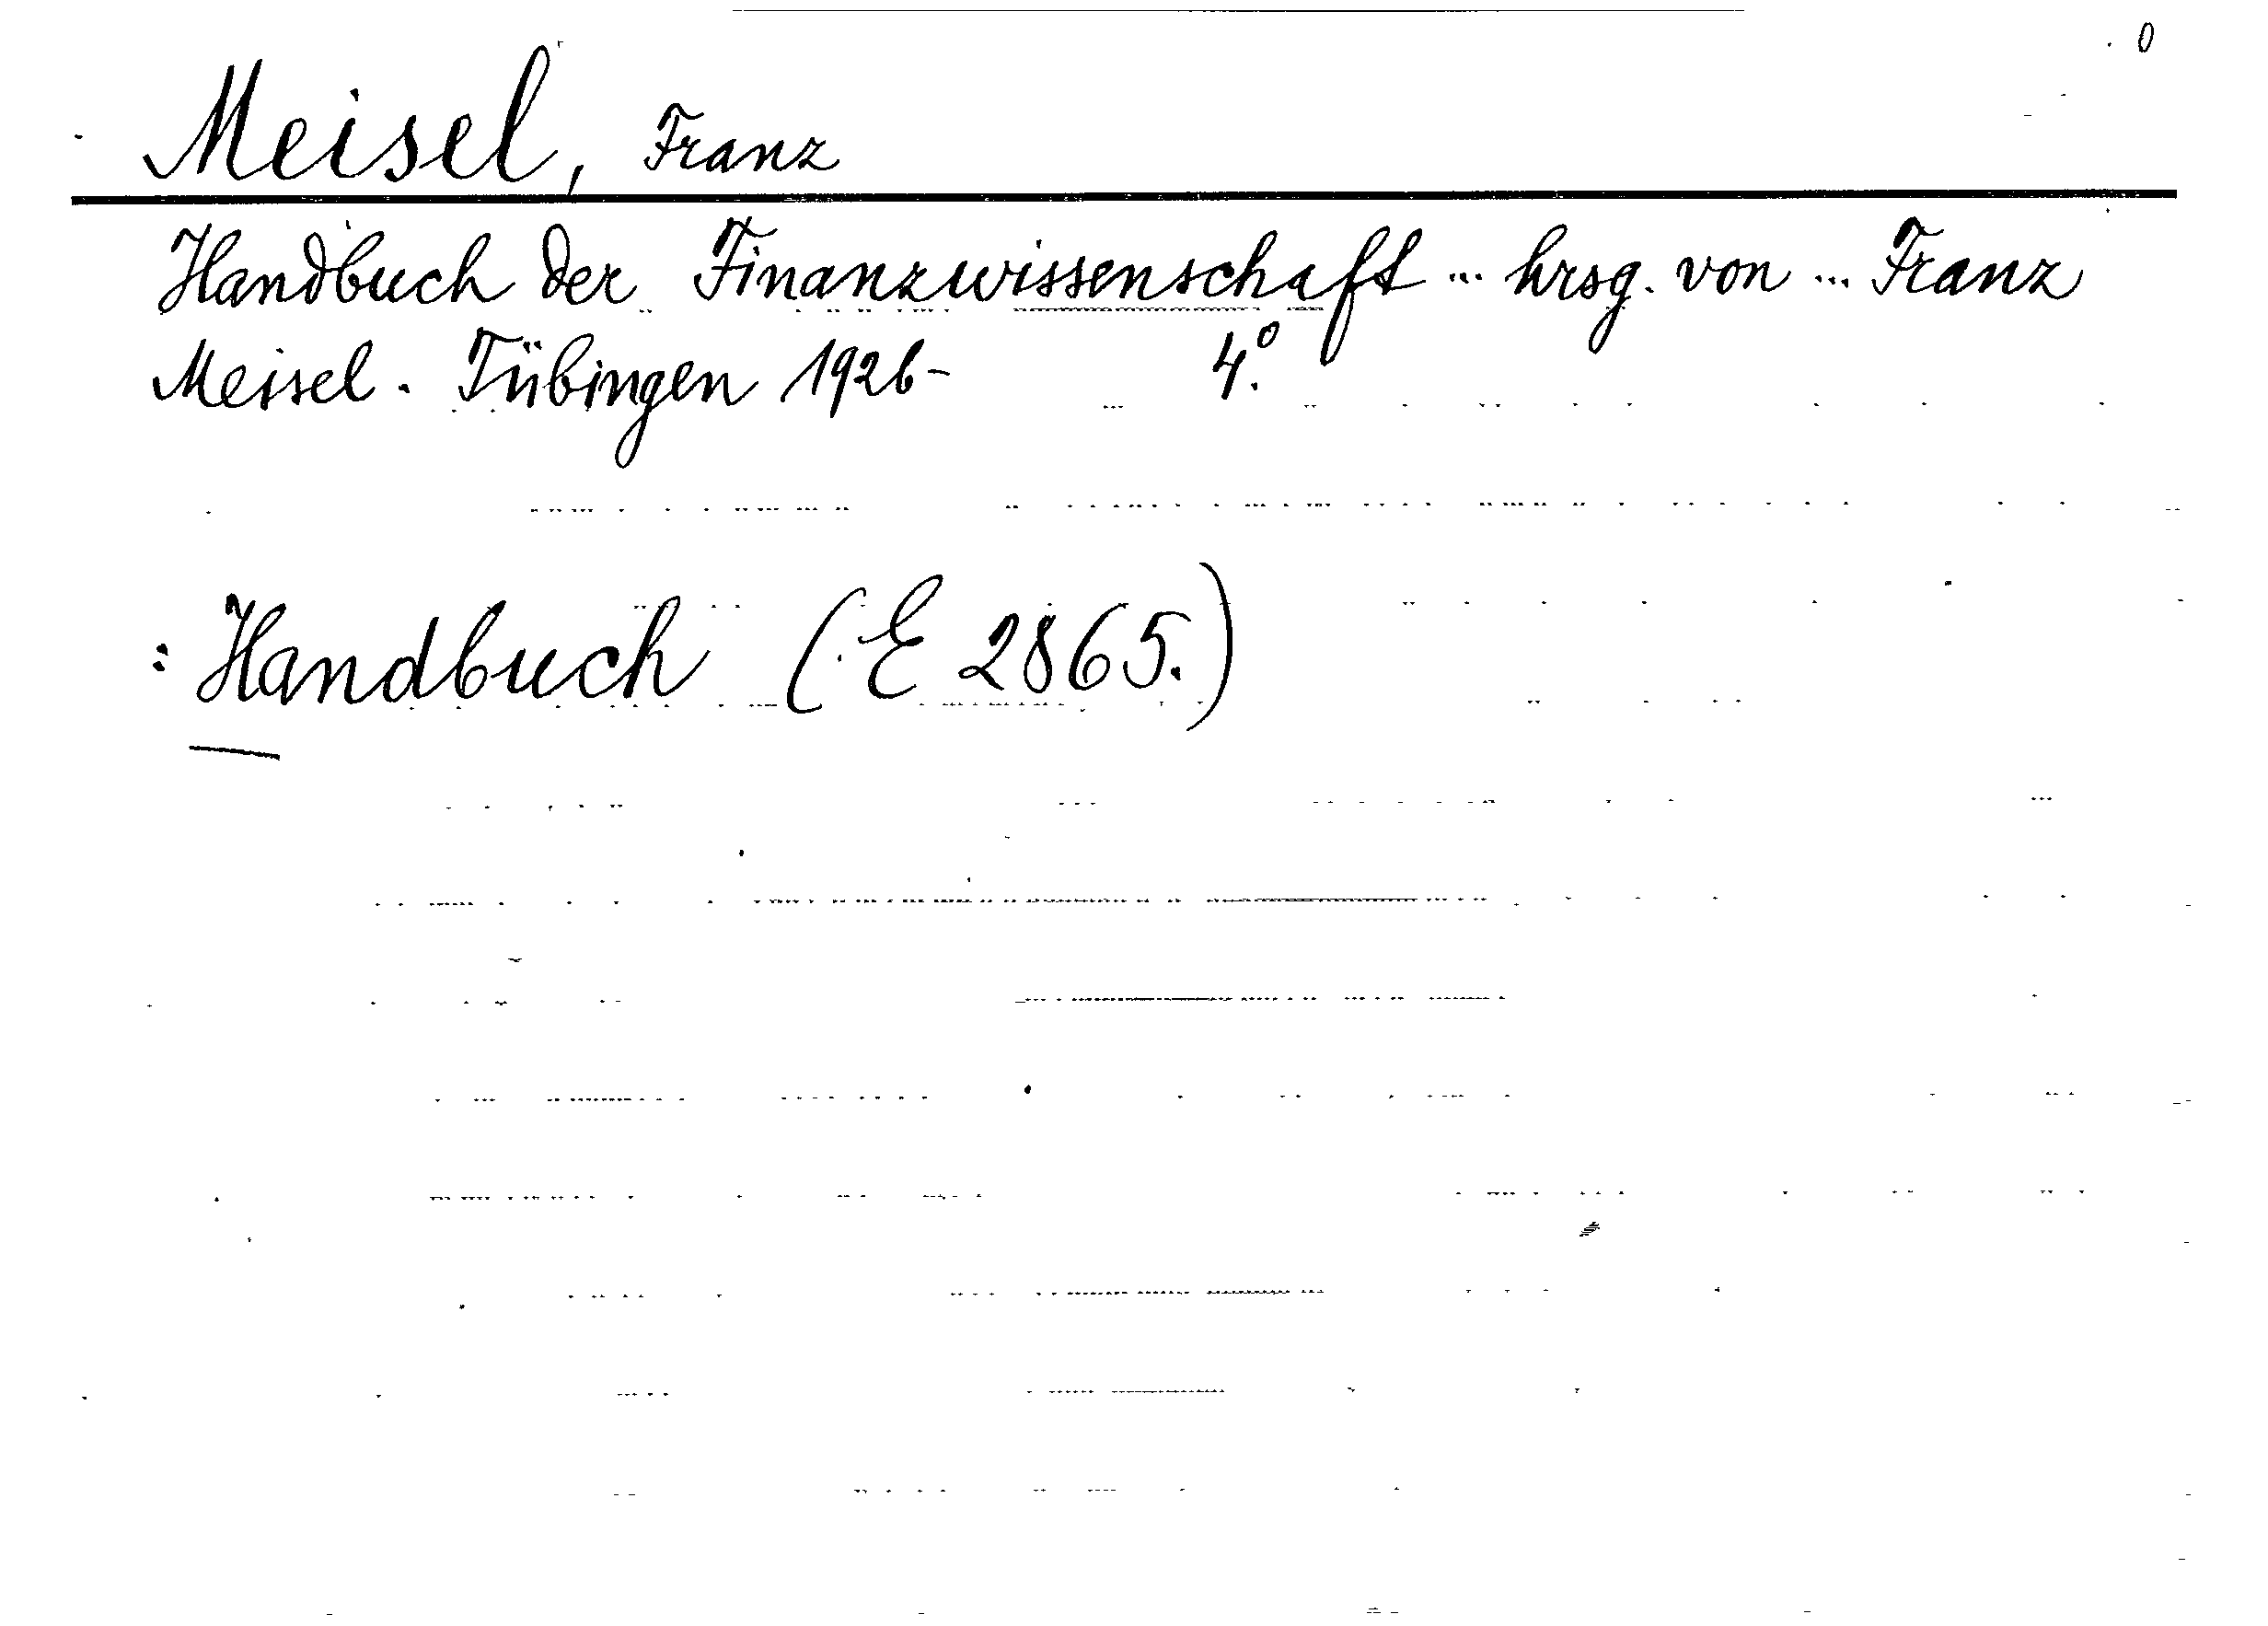 0
Meisel, Franz
Handbuch der Finanzwissenschaft ... hrsg. von ... Franz
Meisel. Tübingen 1926- 4º.
: Handbuch (E 2865.)